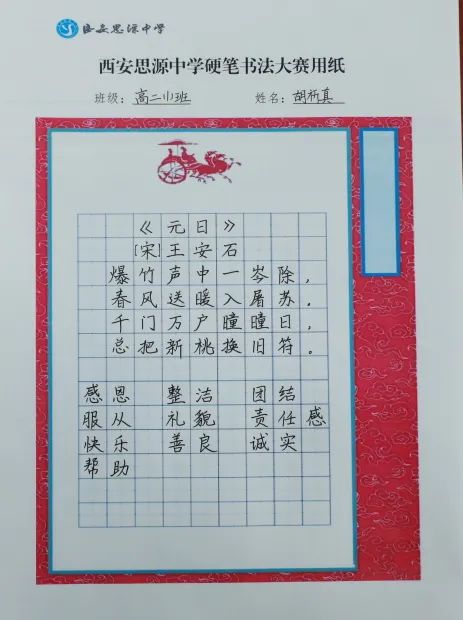 西安思源中学
西安思源中学硬笔书法大赛用纸
班级：高二小班 姓名：胡析真
《元日》
[宋]王安石
爆竹声中一岑除，
春风送暖入屠苏。
千门万户曈曈日，
总把新桃换旧符。
感恩 整洁 团结
服从 礼貌 责任感
快乐 善良 诚实
帮助